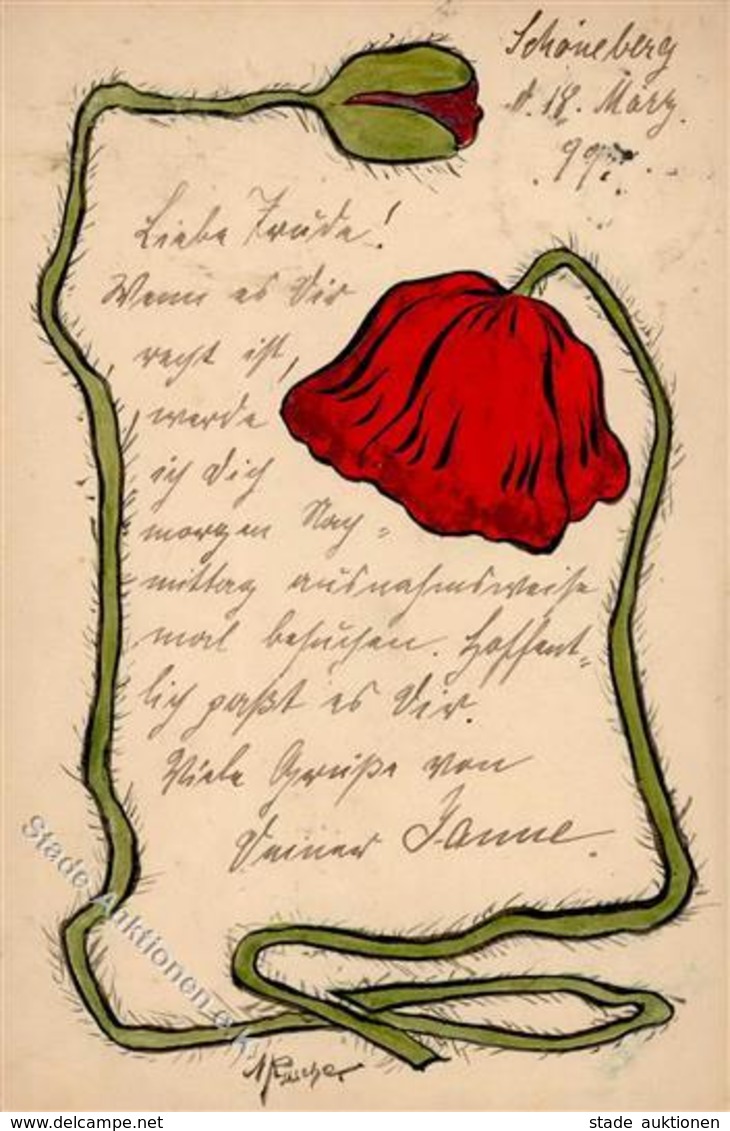 Schöneberg
d. 18. März.
99.
Liebe Trude!
Wenn es Dir
recht ist,
werde
ich Dich
morgen Nach=
mittag ausnahmsweise
mal besuchen. Hoffent=
lich paßt es Dir.
Viele Grüße von
Deiner Janne.
Stade Auktionen e.K.
www.delcampe.net
stade auktionen